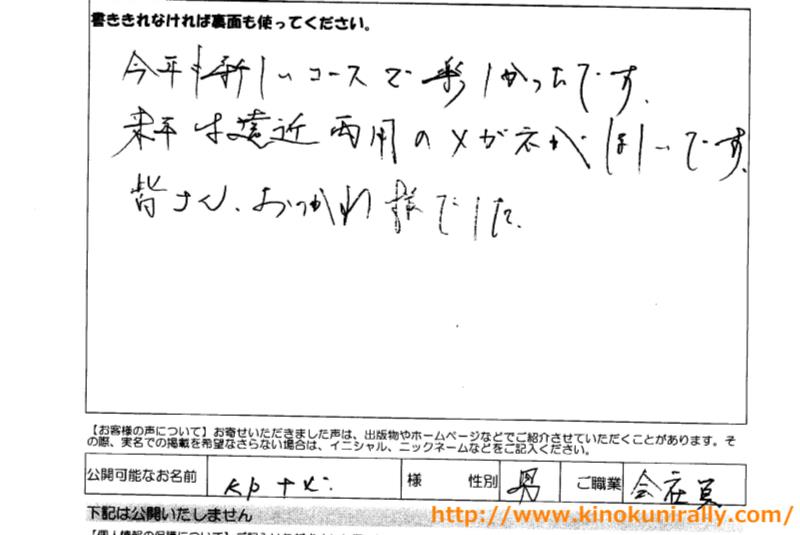 書ききれなければ裏面も使ってください。
今年も新しいコースで楽しかったです。
来年は遠近両用のメガネがほしいです。
皆さん、おつかれ様でした。
【お客様の声について】お寄せいただきました声は、出版物やホームページなどでご紹介させていただくことがあります。そ
の際、実名での掲載を希望なさらない場合は、イニシャル、ニックネームなどをご記入ください。
公開可能なお名前 様 性別 男 ご職業 会社員
下記は公開いたしません
http://www.kinokunirally.com/